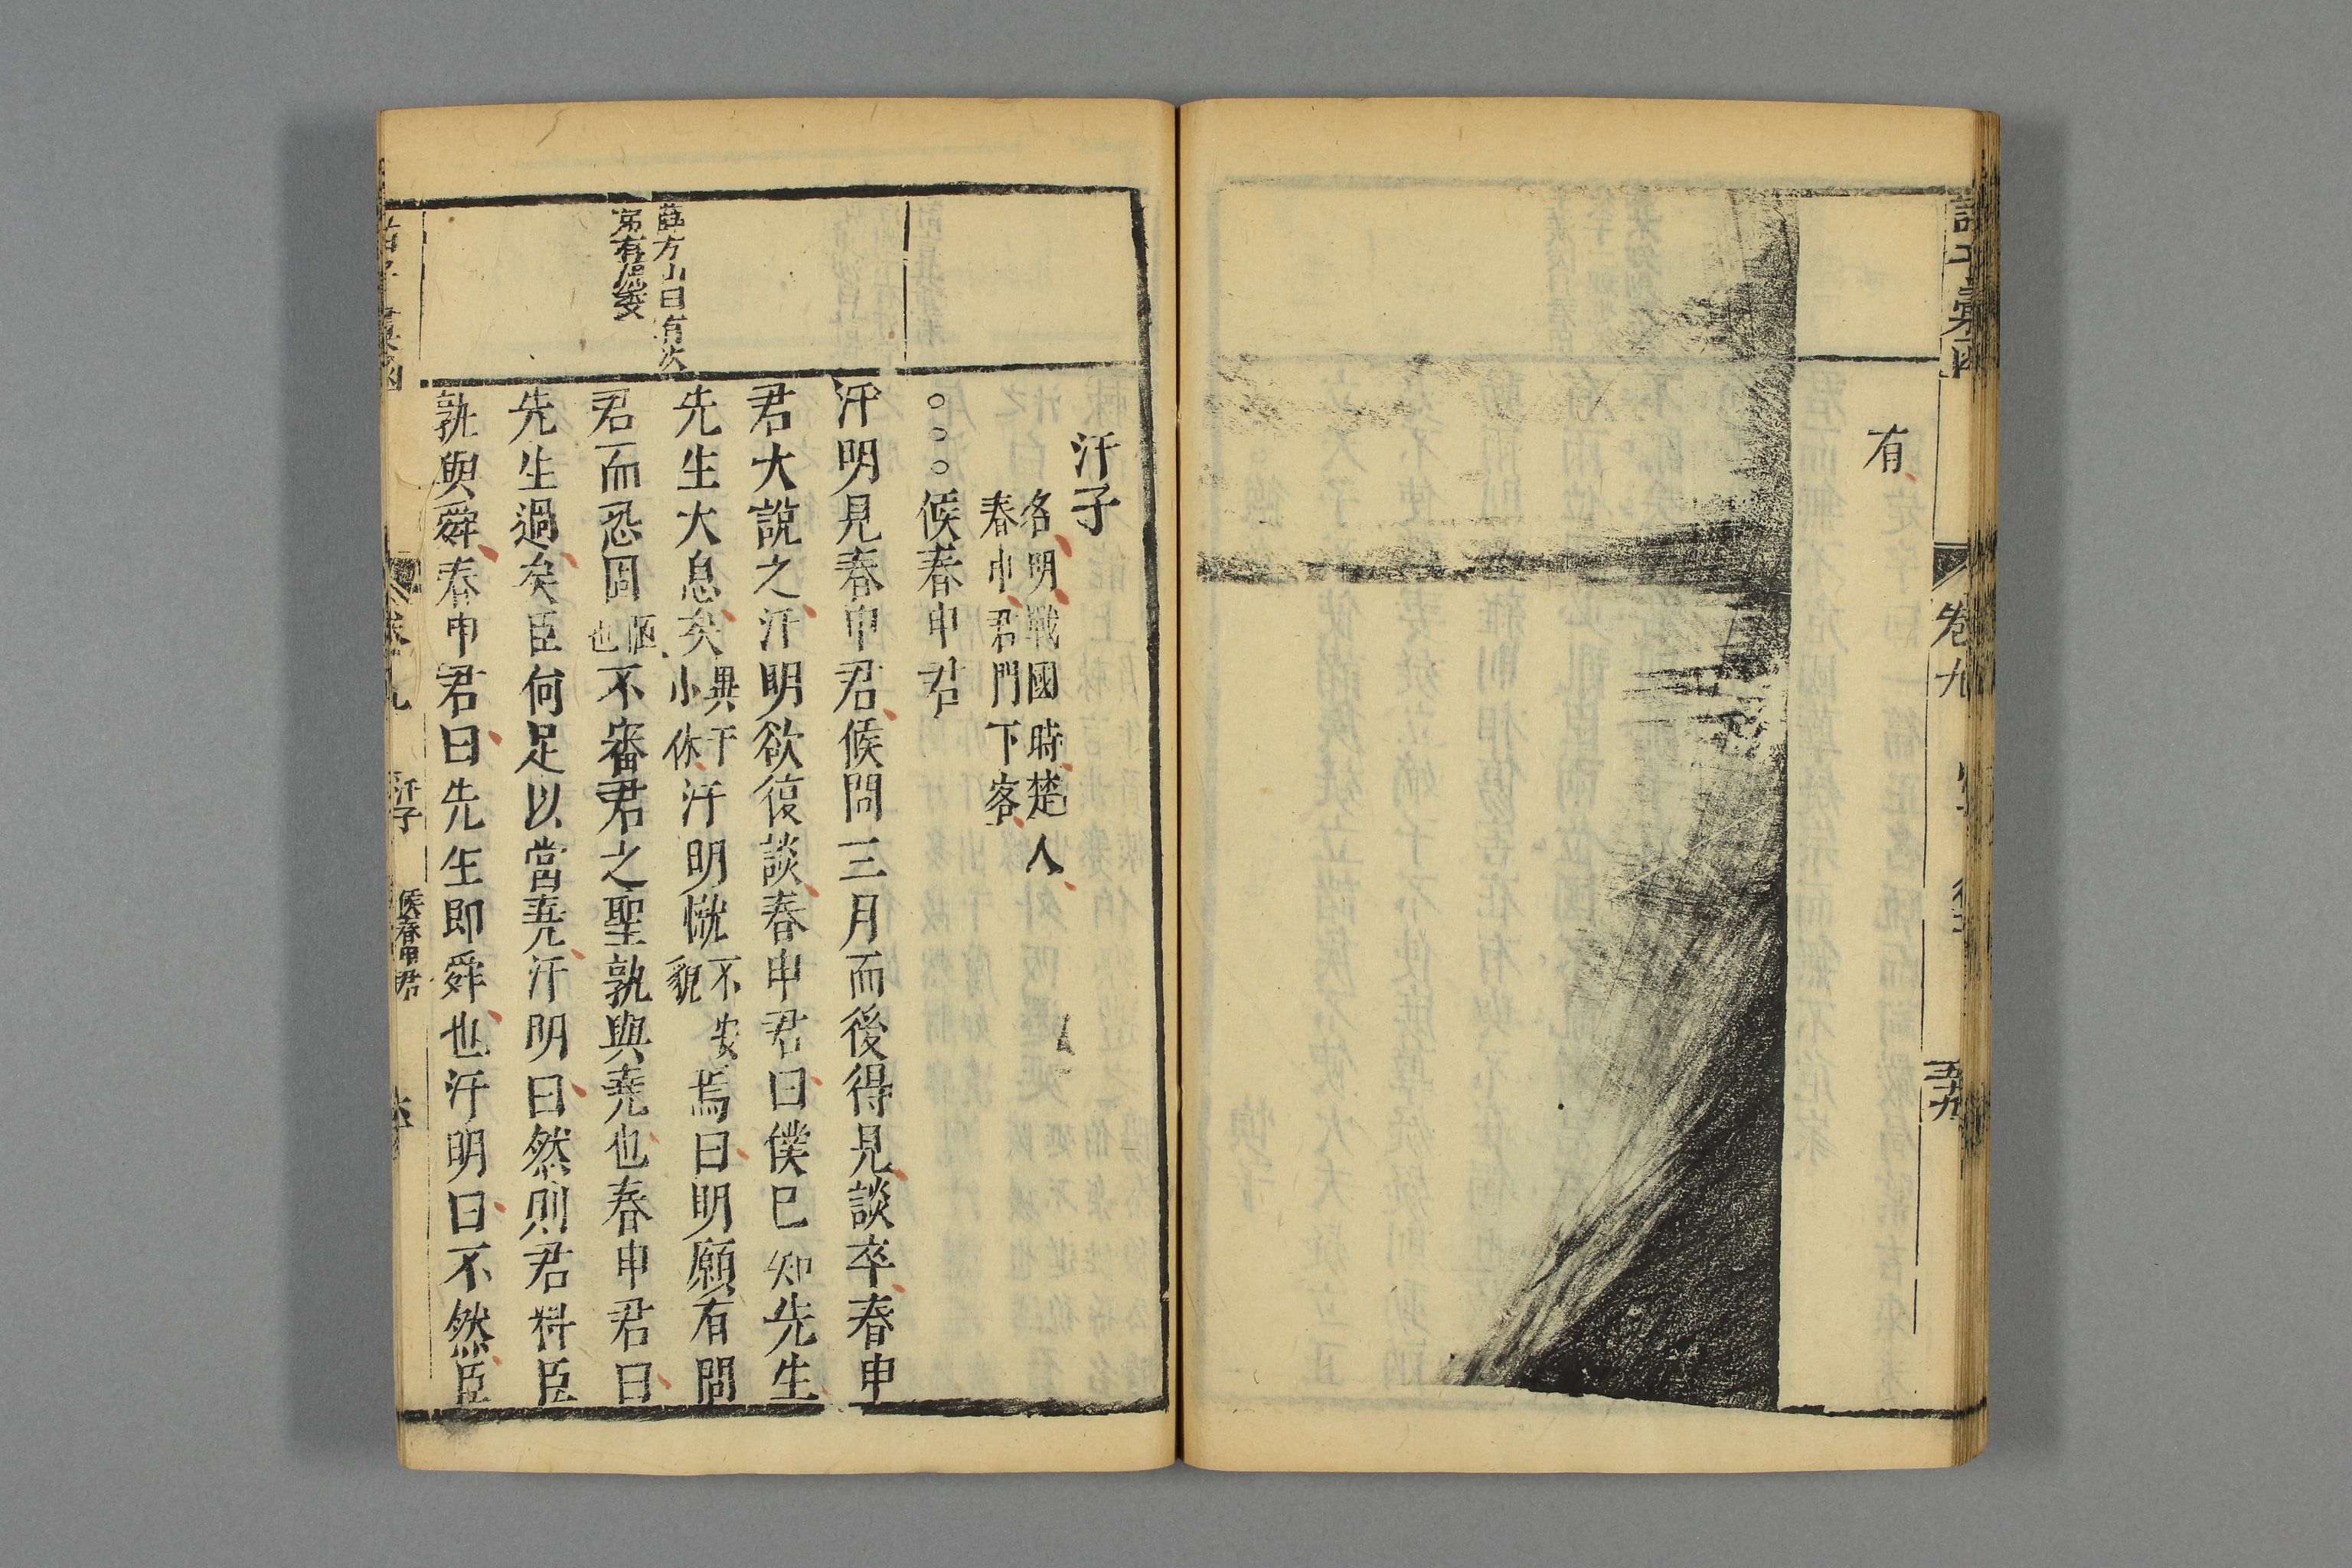 有
卷九
五十九
汗子
名明戰國時楚人
春申君門下客
○○○候春申君
汗明見春申君候問三月而後得見談卒春申
君大說之汗明欲復談春申君曰僕已知先生
先生大息矣異于小休汗明憱不安貌焉曰明願有問
君而恐固陋也不審君之聖孰與堯也春申君曰
先生過矣臣何足以當堯汗明曰然則君料臣
孰與舜春申君曰先生即舜也汗明曰不然臣
薛方山曰有次
第有態
汗子
候春申君